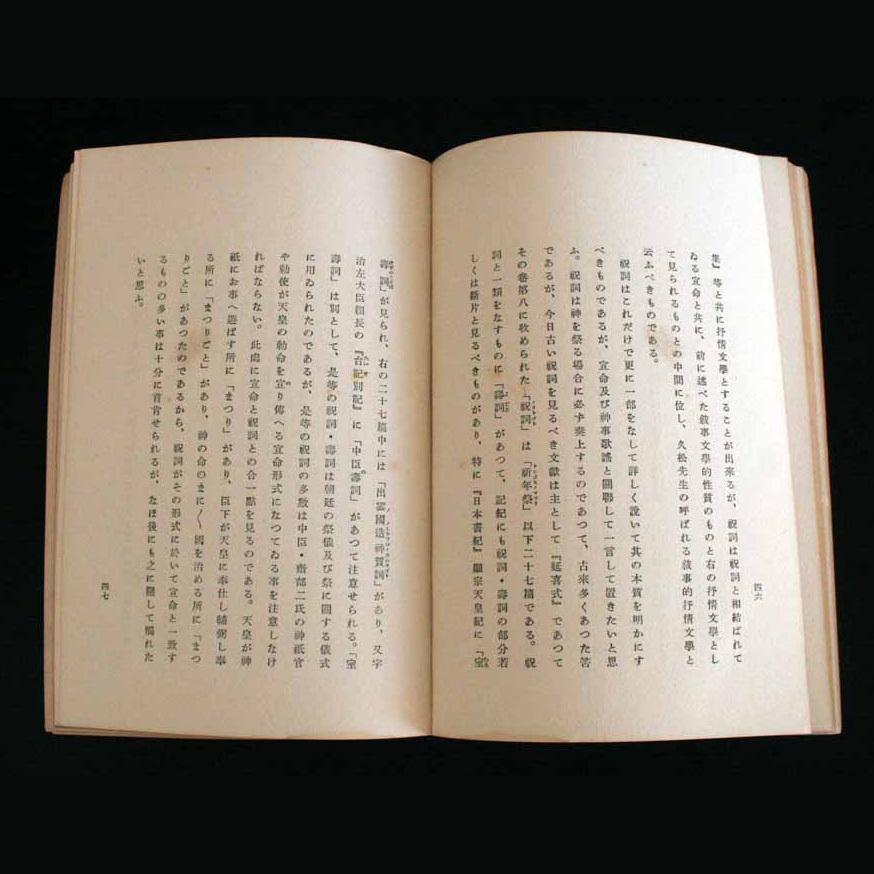 集』等と共に抒情文學とすることが出來るが、祝詞は祝詞と相結ばれて
ゐる宣命と共に、前に述べた敍事文學的性質のものと右の抒情文學とし
て見られるものとの中間に位し、久松先生の呼ばれる敍事的抒情文學と
云ふべきものである。
祝詞はこれだけで更に一部をなして詳しく說いて其の本質を明かにす
べきものであるが、宣命及び神事歌謠と關聯して一言して置きたいと思
ふ。祝詞は神を祭る場合に必ず奏上するのであつて、古來多くあつた筈
であるが、今日古い祝詞を見るべき文獻は主として『延喜式』であつて
その卷第八に收められた「祝詞」は「祈年祭」以下二十七篇である。祝
詞と一類をなすものに「壽詞」があつて、記紀にも祝詞・壽詞の部分若
しくは斷片と見るべきものがあり、特に『日本書紀』顯宗天皇紀に「室
四六
壽詞」が見られ、右の二十七篇中には「出雲國造神賀詞」があり、又宇
治左大臣賴長の『台記別記』に「中臣壽詞」があつて注意せられる。「室
壽詞」は別として、是等の祝詞・壽詞は朝廷の祭儀及び祭に關する儀式
に用ゐられたのであるが、是等の祝詞の多數は中臣・齋部二氏の神祇官
や勅使が天皇の勅命を宣り傳へる宣命形式になつてゐる事を注意しなけ
ればならない。此處に宣命と祝詞との合一點を見るのである。天皇が神
祇にお事へ遊ばす所に「まつり」があり、臣下が天皇に奉仕し輔弼し奉
る所に「まつりごと」があり、神の命のまに〳〵國を治める所に「まつ
りごと」があつたのであるから、祝詞がその形式に於いて宣命と一致す
るものの多い事は十分に首肯せられるが、なほ後にも之に關して觸れた
いと思ふ。
四七